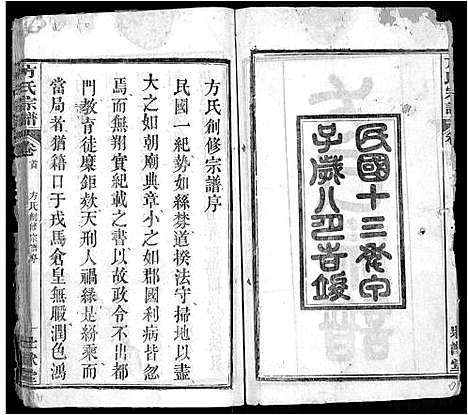 民國十三年甲
子歲八月告竣
方氏創修宗譜序
民國一紀勢如絲棼道揆法守掃地以盡
大之如朝廟典章小之如郡國利病皆忽
焉而無翔實紀載之書以故政令不出都
門教育徒糜鉅欸天刑人禍緣是紛乘而
當局者猶藉口于戎馬倉皇無暇潤色鴻
方氏宗譜
卷首
方氏創修宗譜序